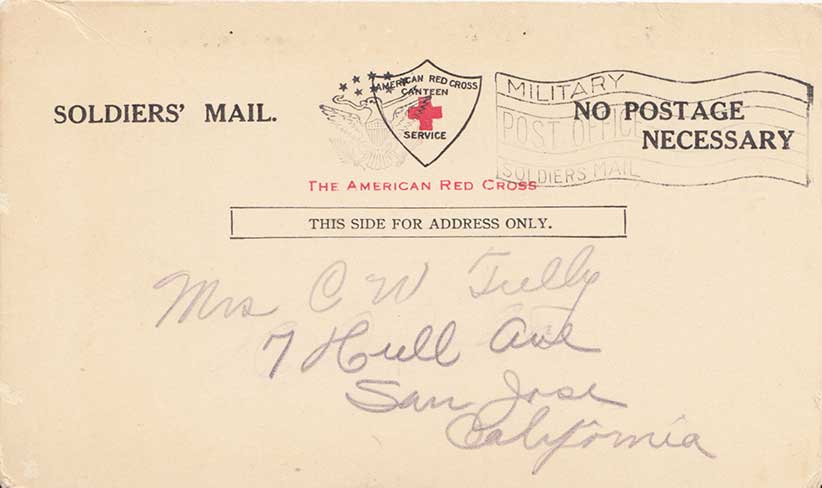 SOLDIERS' MAIL.
AMERICAN RED CROSS
CANTEEN
SERVICE
MILITARY
POST OFFICE
SOLDIERS MAIL
NO POSTAGE
NECESSARY
THE AMERICAN RED CROSS
THIS SIDE FOR ADDRESS ONLY.
Mrs C W Tully
7 Hull Ave
San Jose
California